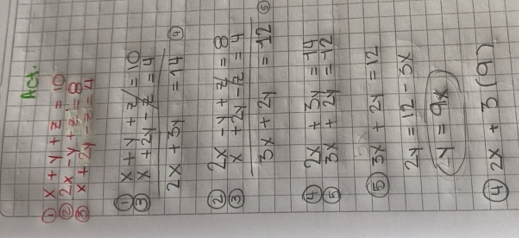 Act.
① x + y + z = 10
② 2x - y + z = 8
③ x + 2y - z = 4
① x + y + z = 10
③ x + 2y - z = 4
2x + 3y = 14 ④
② 2x - y + z = 8
③ x + 2y - z = 4
3x + 2y = 12 ⑤
④ 2x + 3y = 14
⑤ 3x + 2y = 12
⑤ 3x + 2y = 12
2y = 12 - 3x
y = 9x
④ 2x + 3 (9)